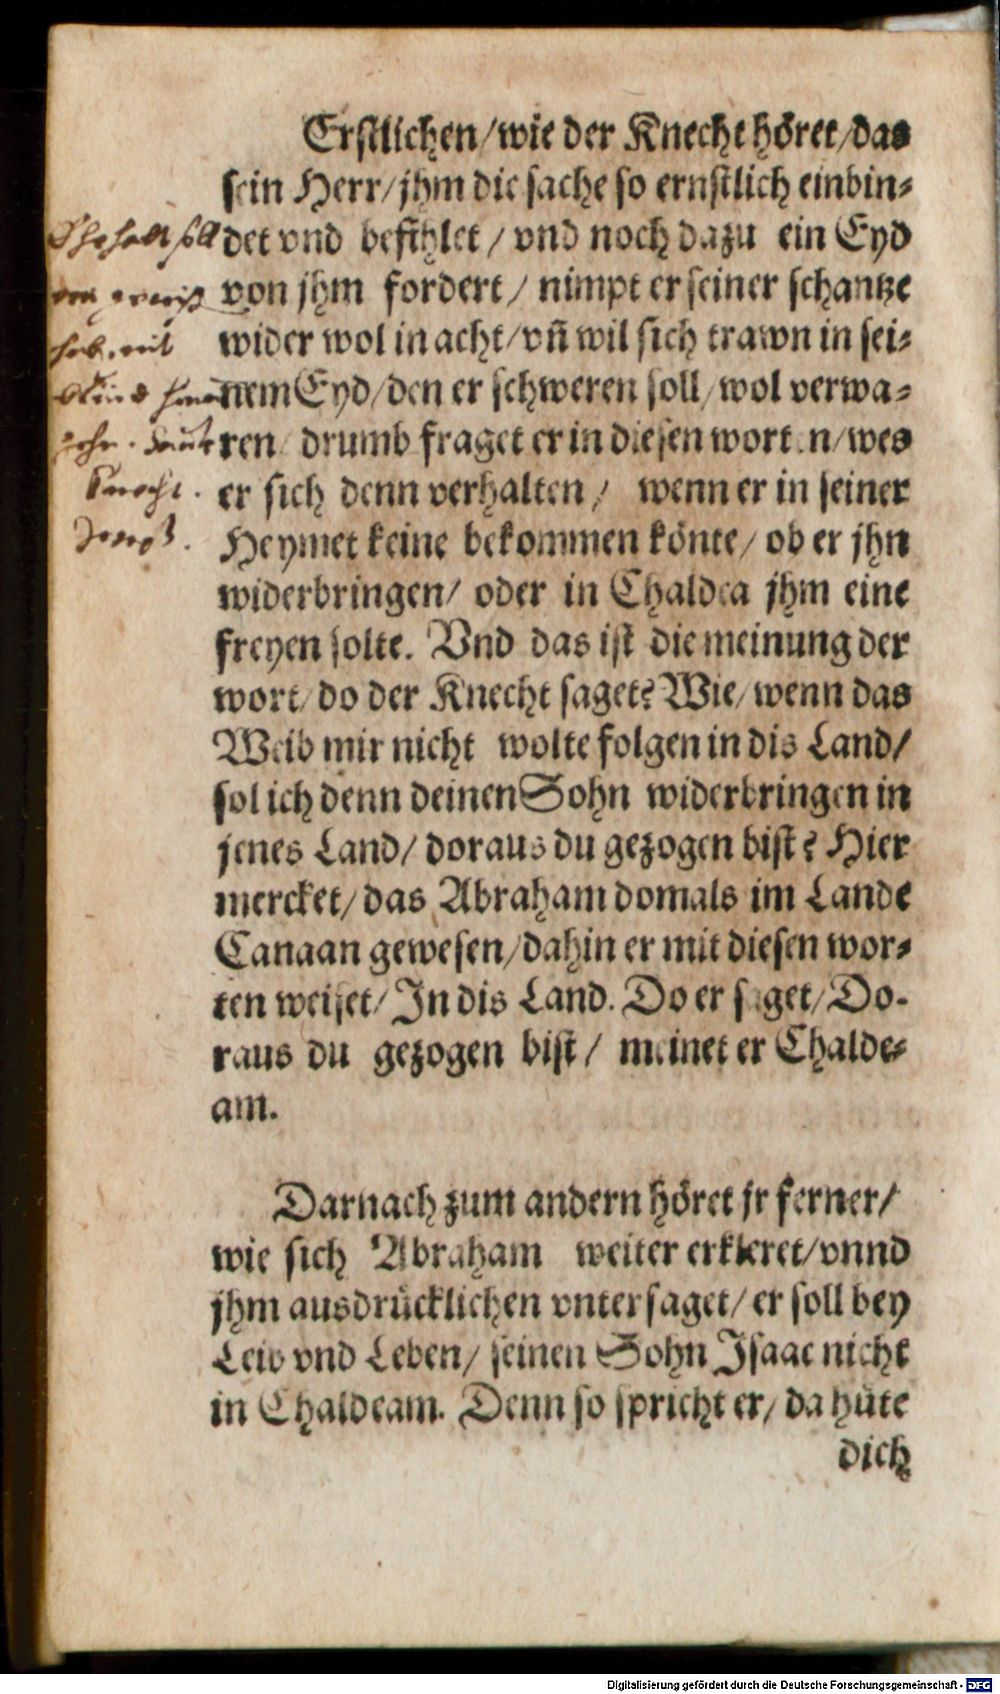 Erstlichen/wie der Knecht höret/das
sein Herr/jhm die sache so ernstlich einbin-
det vnd befihlet/ vnd noch dazu ein Eyd
von jhm fordert/ nimpt er seiner schantze
wider wol in acht/vñ wil sich trawn in sei-
nem Eyd/den er schweren soll/wol verwa-
ren/ drumb fraget er in diesen worten/wes
er sich denn verhalten/ wenn er in seiner
Heymet keine bekommen könte/ ob er jhn
widerbringen/ oder in Chaldea jhm eine
freyen solte. Vnd das ist die meinung der
wort/do der Knecht saget? Wie/wenn das
Weib mir nicht wolte folgen in dis Land/
sol ich denn deinen Sohn widerbringen in
jenes Land/ doraus du gezogen bist? Hier
mercket/das Abraham domals im Lande
Canaan gewesen/dahin er mit diesen wor-
ten weiset/ In dis Land. Do er saget/ Do-
raus du gezogen bist/ meinet er Chalde-
am.
Darnach zum andern höret jr ferner/
wie sich Abraham weiter erkleret/vnnd
jhm ausdrücklichen vntersaget/er soll bey
Leib vnd Leben/ seinen Sohn Isaac nicht
in Chaldeam. Denn so spricht er/ da hüte
dich
Knecht.
Digitalisierung gefördert durch die Deutsche Forschungsgemeinschaft - DFG